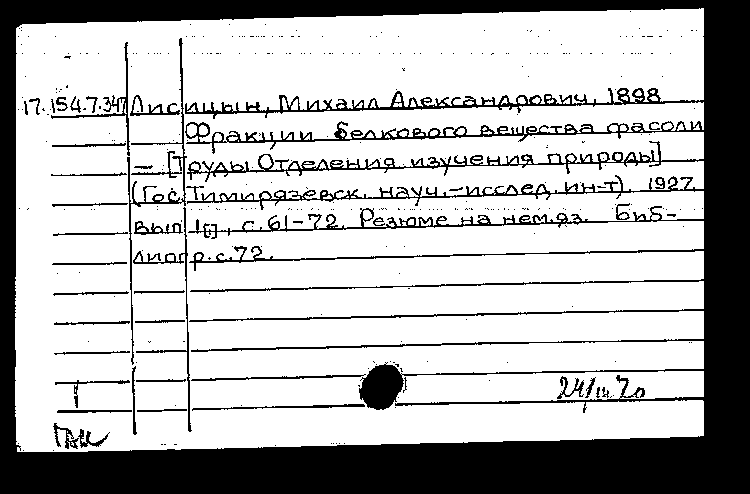 17.154.7.347 Лисицын, Михаил Александрович, 1898
Фракции белкового вещества фасоли
— [Труды Отделения изучения природы]
(Гос. Тимирязевск. науч.-исслед. ин-т). 1927,
вып. 1[], с. 61-72. Резюме на нем.яз. Биб-
лиогр. с. 72.
24/III 70